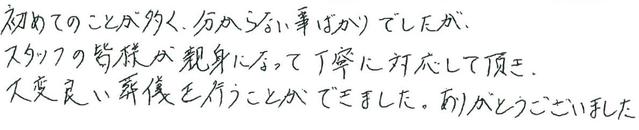 初めてのことが多く、分からない事ばかりでしたが、
スタッフの皆様が親身になって丁寧に対応して頂き、
大変良い葬儀を行うことができました。ありがとうございました